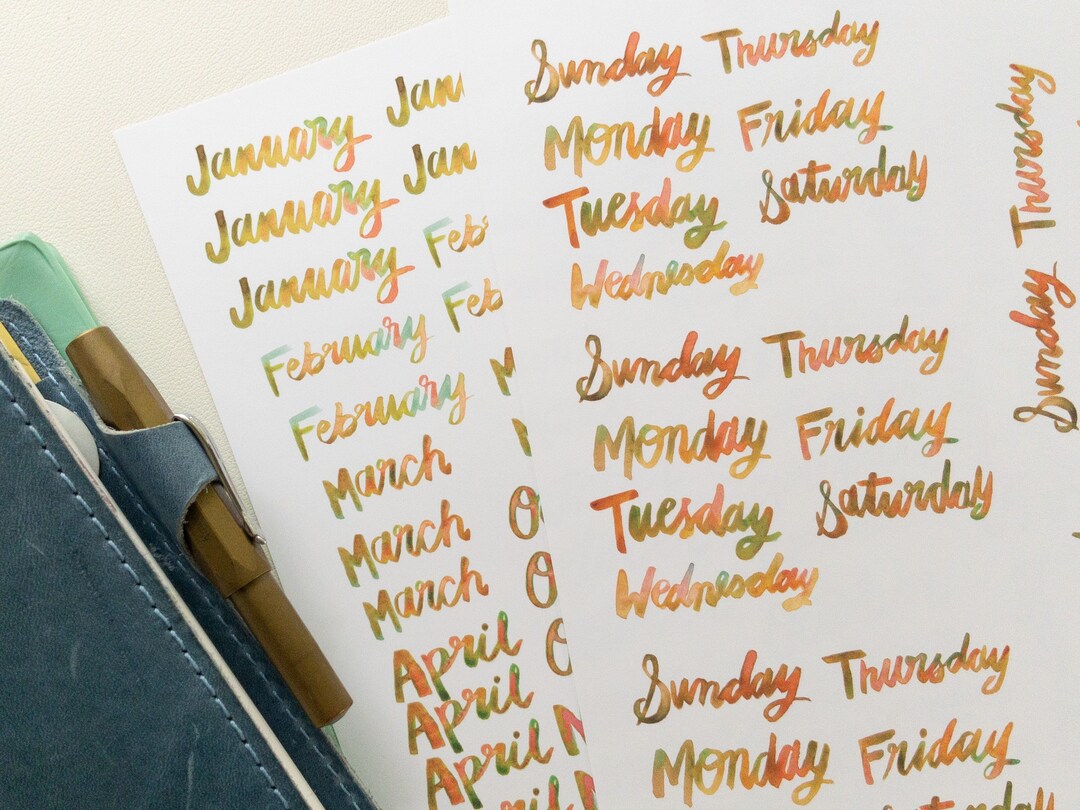 January Jan
January Jan
January Feb
February Feb
February M
March
March O
March O
April O
April
April
Sunday Thursday
Monday Friday
Tuesday Saturday
Wednesday
Sunday Thursday
Monday Friday
Tuesday Saturday
Wednesday
Sunday Thursday
Monday Friday
Sunday Thursday